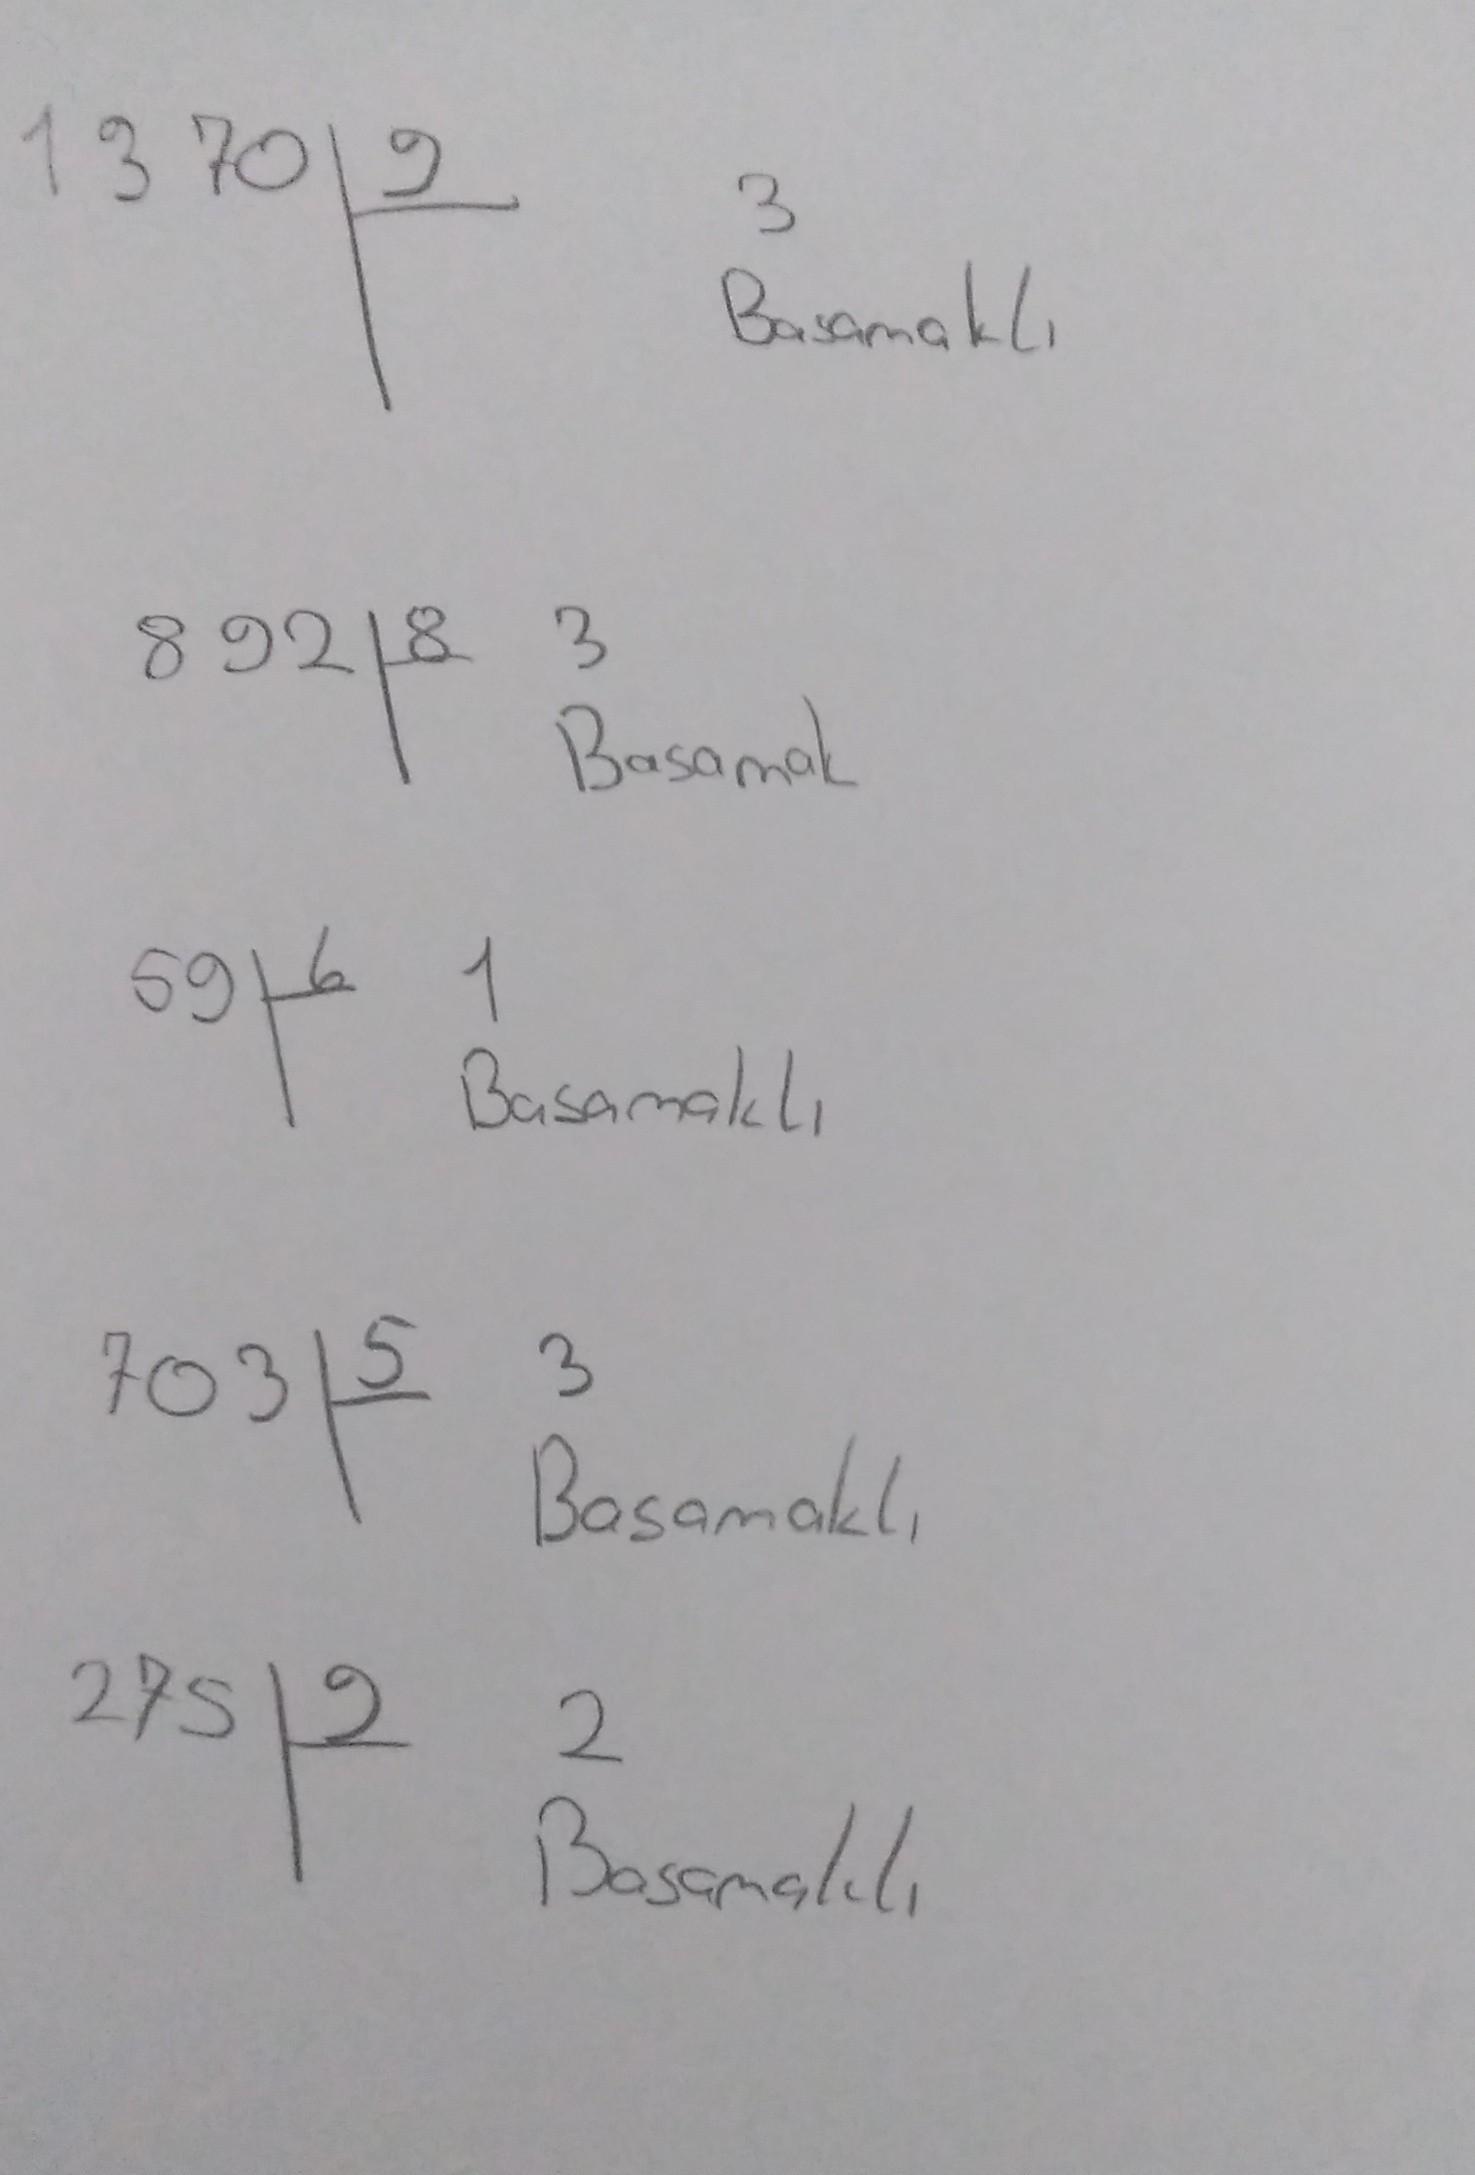 1370 9
3
Basamaklı
892 8 3
Basamak
59 6 1
Basamaklı
703 5 3
Basamaklı
275 9 2
Basamaklı